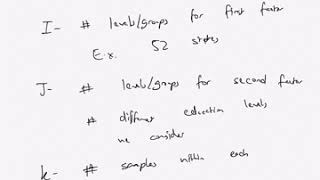 I - # levels/groups for first factor
E.x. 52 states
J- # levels/groups for second factor
# different education levels
we consider
k- # samples within each